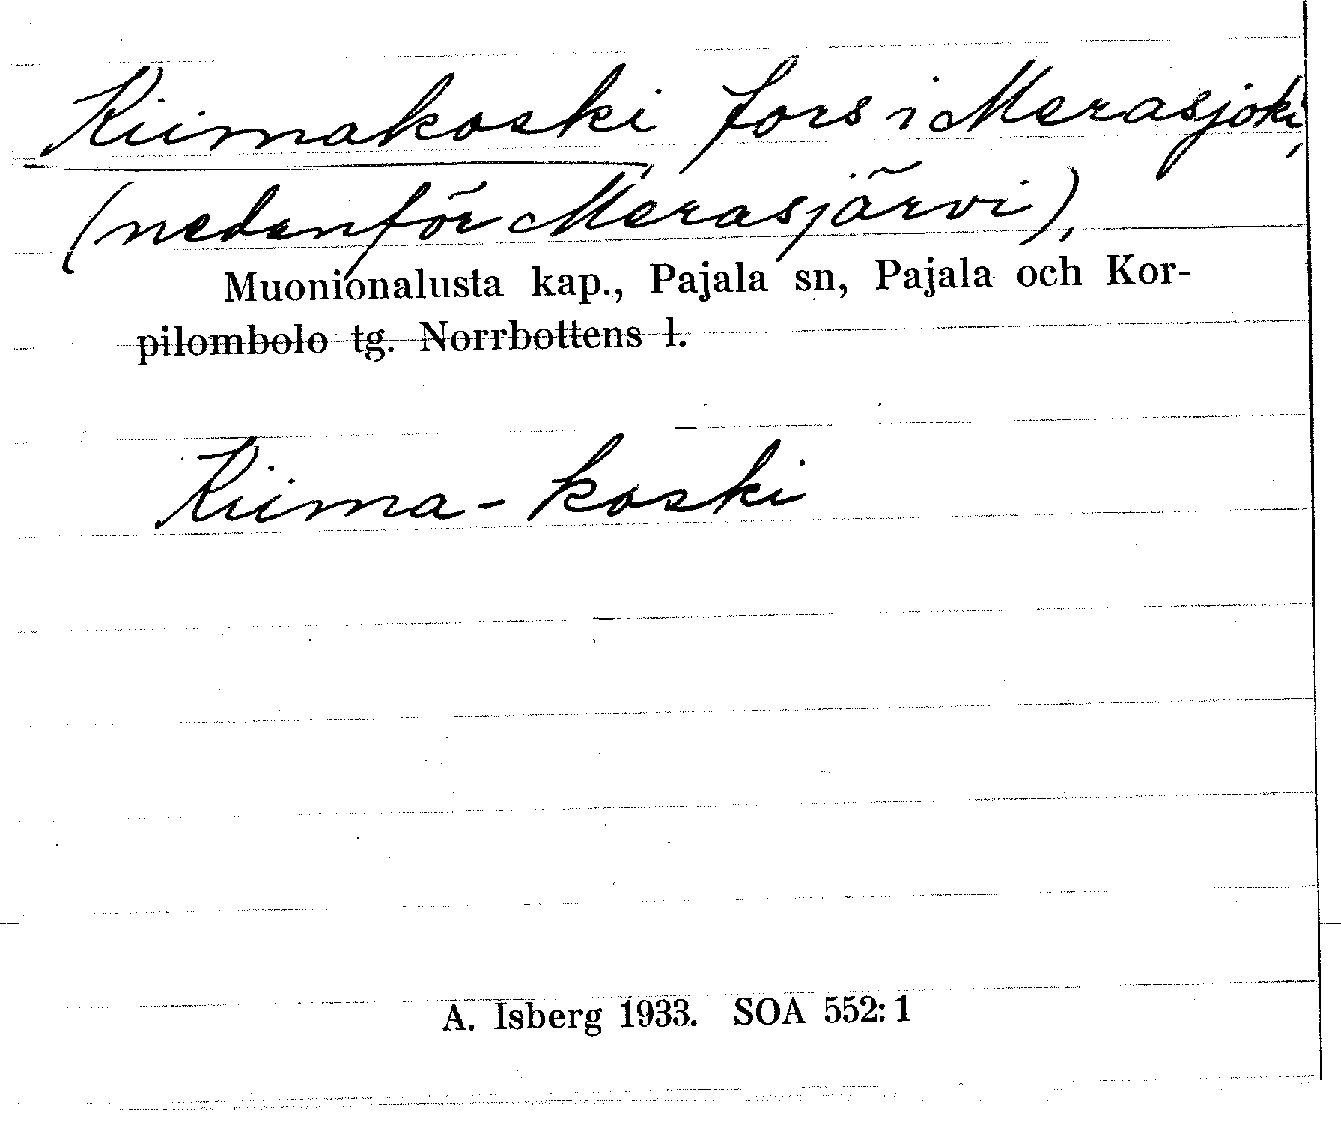 Riimakoski fors i Merasjoki,
(nedanför Merasjärvi),
Muonionalusta kap., Pajala sn, Pajala och Kor-
pilombolo tg. Norrbottens l.
Riima-koski
A. Isberg 1933. SOA 552:1